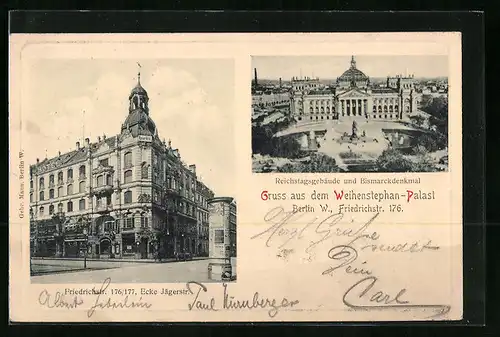 Gebr. Mann, Berlin W.
Reichstagsgebäude und Bismarckdenkmal
Gruss aus dem Weihenstephan-Palast
Berlin W., Friedrichstr. 176.
Herzl. Grüße
sendet
Dein
Carl
Friedrichstr. 176/177, Ecke Jägerstr.
Albert Paul Nurnberger